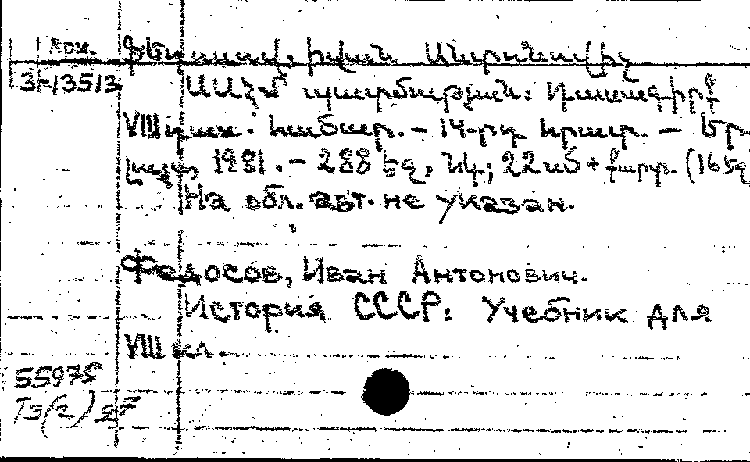 Арм.
Ֆեդոսով, Իվան Անտոնովիչ
3-13513
ՍՍՀՄ պատմություն: Դասագիրք
VIII դաս. համար. – 14-րդ հրատ. – Եր.
1981. – 288 էջ, նկ; 22 սմ + քարտ. (16 էջ
На обл. авт. не указан.
Федосов, Иван Антонович.
История СССР: Учебник для
VIII кл.
55975
T3(2) 27